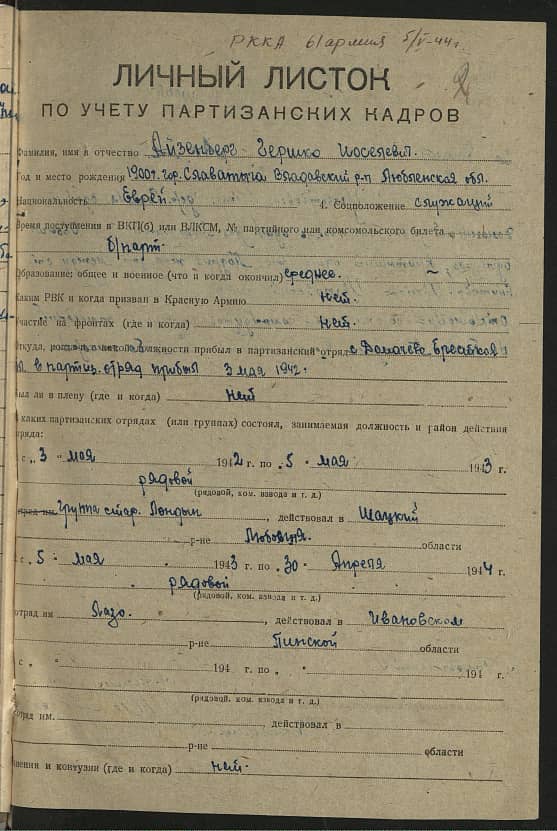 РККА 61 армия 5/V-44г.
2
ЛИЧНЫЙ ЛИСТОК
ПО УЧЕТУ ПАРТИЗАНСКИХ КАДРОВ
Фамилия, имя и отчество Айзенберг Гершко Иоселевич.
Год и место рождения 1900г. гор. Славатыча Владавский р-н Любленская обл.
Национальность Еврей 4. Соцположение служащий
Время поступления в ВКП(б) или ВЛКСМ, № партийного или комсомольского билета
б/парт.
Образование: общее и военное (что и когда окончил) среднее.
Каким РВК и когда призван в Красную Армию нет.
Участие на фронтах (где и когда) нет.
Откуда, должности прибыл в партизанский отряд с Домачево
в партиз. отряд прибыл 3 мая 1942.
был ли в плену (где и когда) нет
каких партизанских отрядах (или группах) состоял, занимаемая должность и район действия
отряда:
с „3 " мая 1942 г. по „5 " мая 1943 г.
рядовой
(рядовой, ком. взвода и т. д.)
Группа Лондын, действовал в Шацкий
р-не области
с „5 " мая 1943 г. по „30 " Апреля 1944 г.
рядовой
(рядовой, ком. взвода и т. д.)
отряд им Лазо., действовал в Ивановском
р-не Пинской области
с „ " 194 г. по „ " 194 г.
(рядовой, ком. взвода и т. д.)
отряд им. , действовал в
р-не области
ранения и контузии (где и когда) нет.